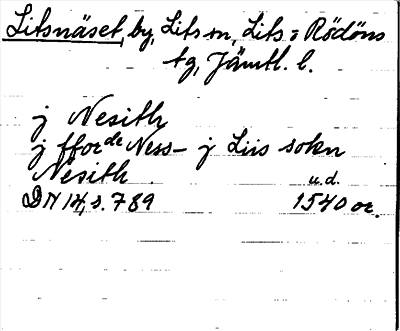 Litsnäset, by, Lits sn, Lits o Rödöns
tg, Jämtl. l.
j Nesith
j fforde Ness – j Liis sokn
Nésith u.d.
DN 14, s. 789 1540 or.